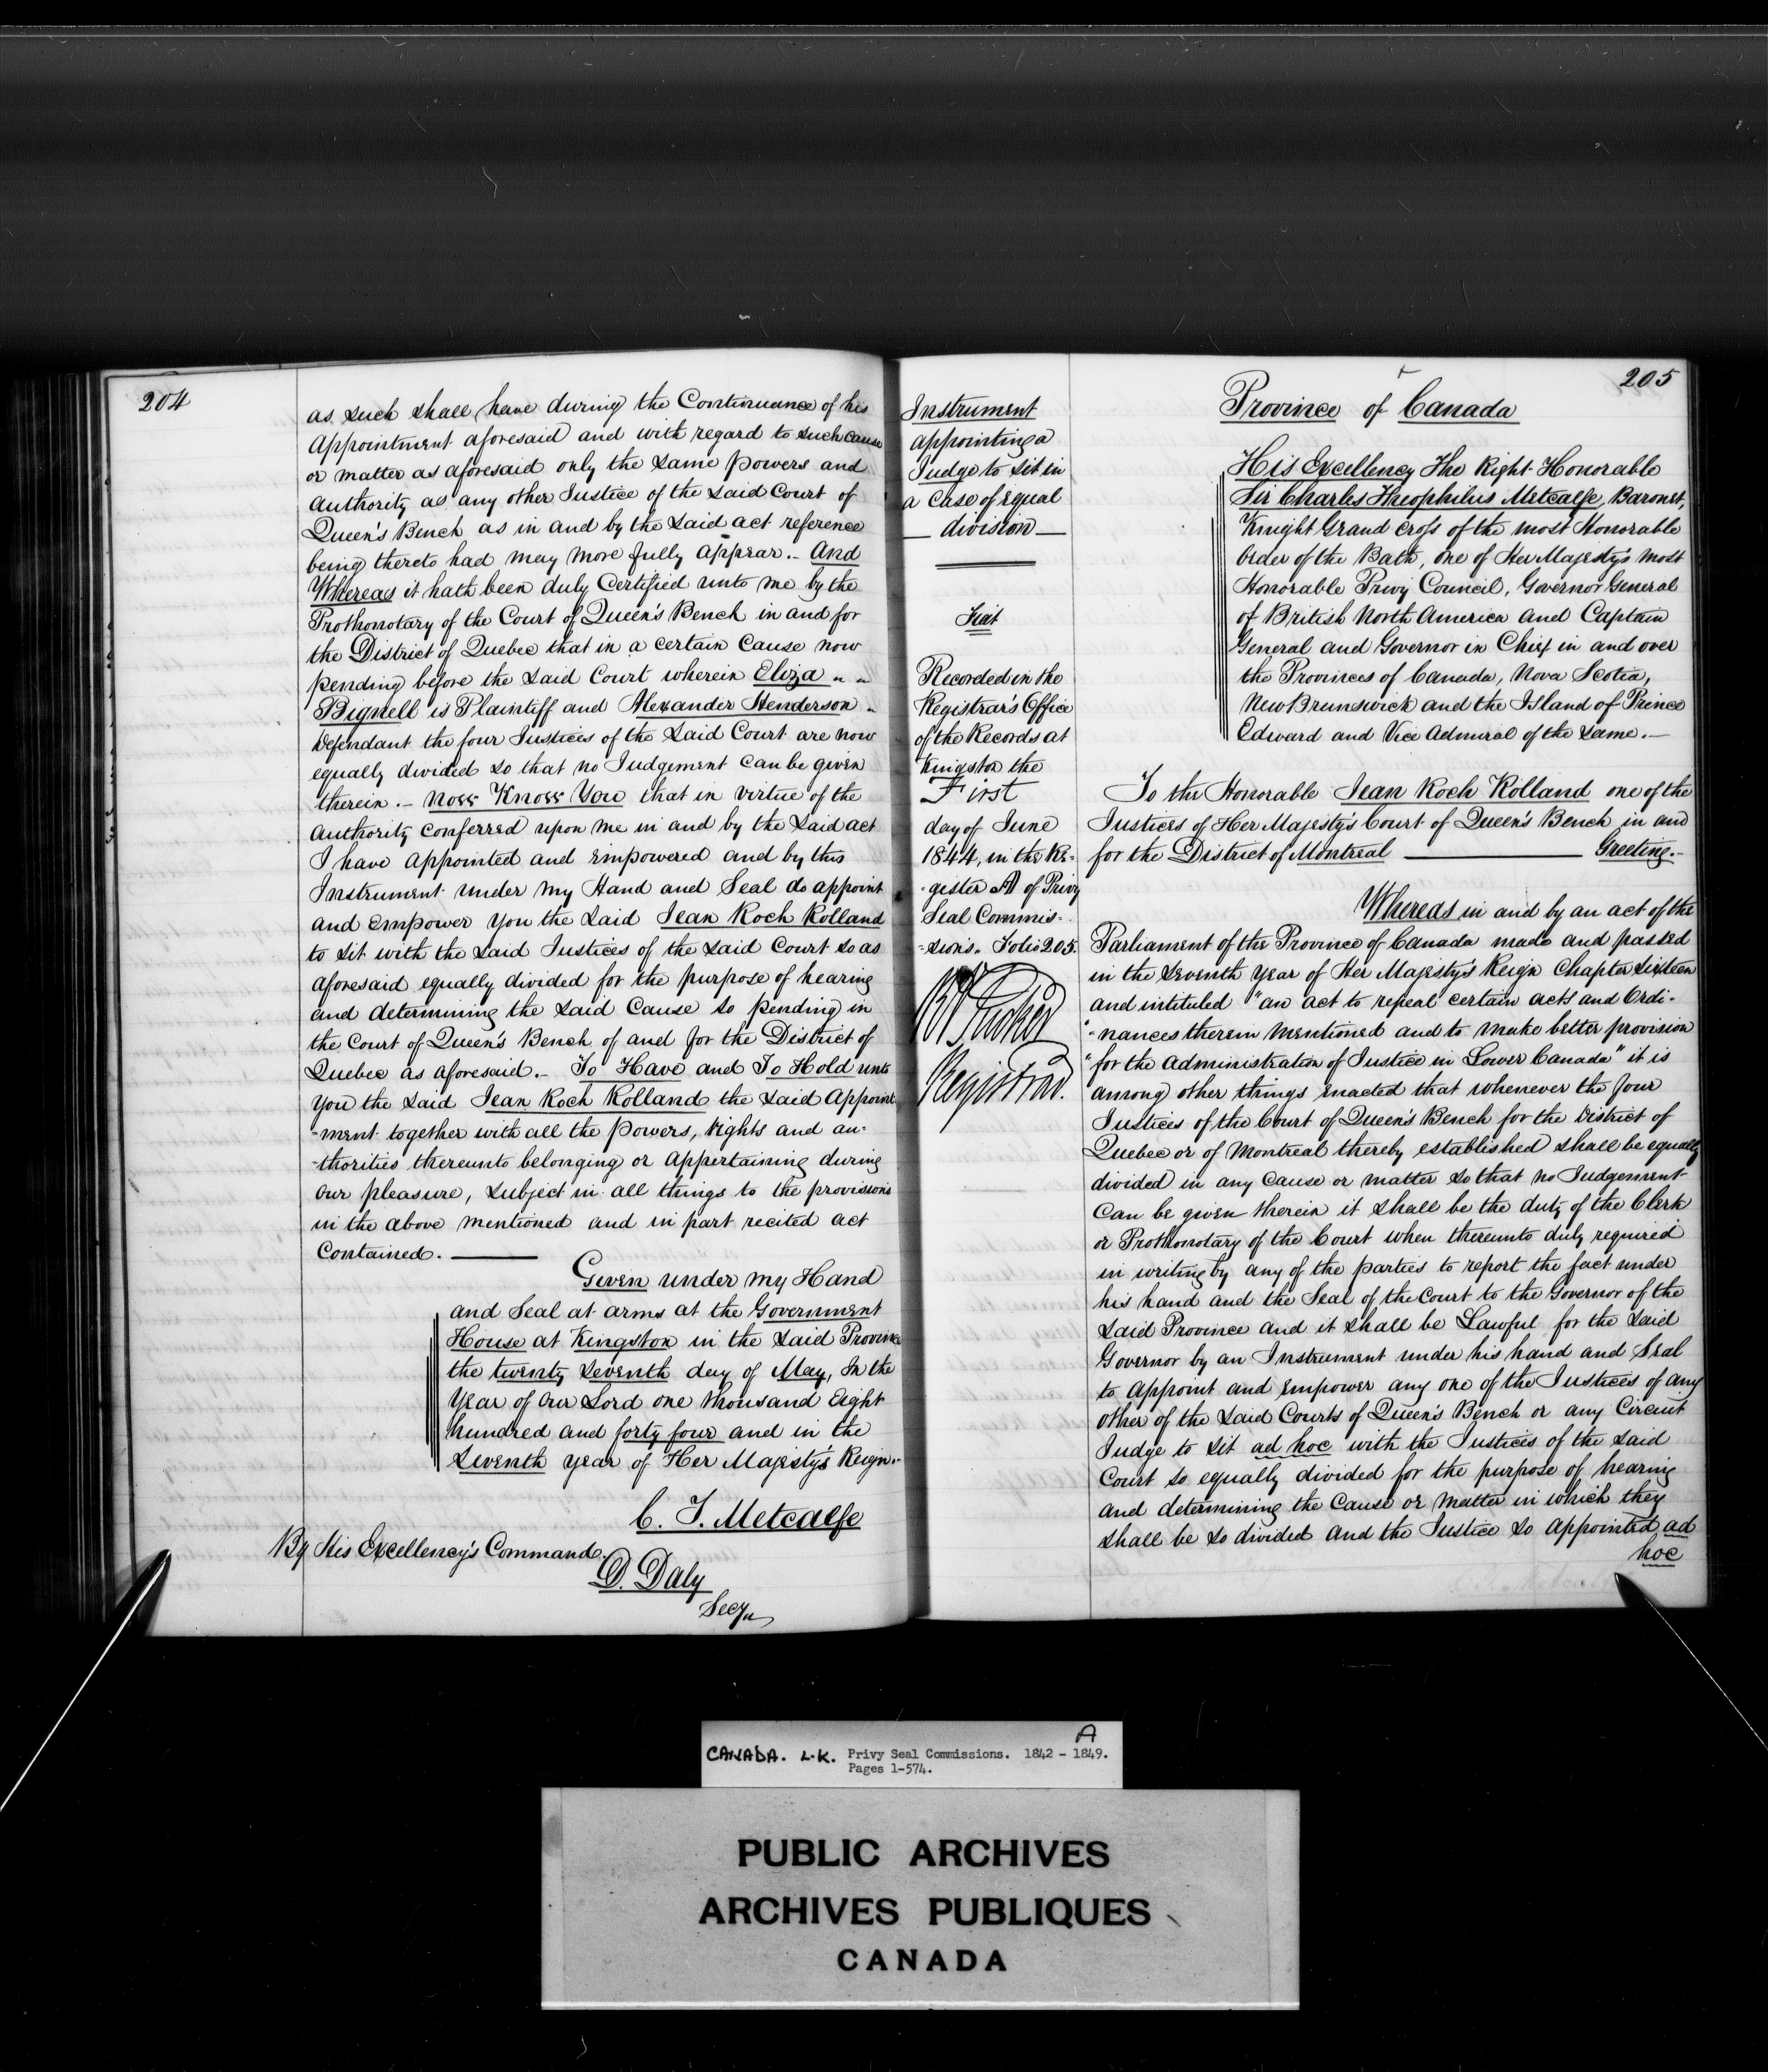 204
as such shall have during the Continuance of his
Appointment aforesaid and with regard to such cause
or matter as aforesaid only the same powers and
Authority as any other Justice of the said Court of
Queen's Bench as in and by the said act reference
being thereto had may more fully appear.- And
Whereas it hath been duly Certified unto me by the
Prothonotary of the Court of Queen's Bench in and for
the District of Quebec that in a certain Cause now
pending before the said Court wherein Eliza " "
Bignell is Plaintiff and Alexander Henderson "
Defendant the four Justices of the said Court are now
equally divided so that no Judgement can be given
therein.- Now Know You that in virtue of the
authority conferred upon me in and by the said act
I have appointed and empowered and by this
Instrument under my Hand and Seal do appoint
and empower you the said Jean Roch Rolland
to sit with the said Justices of the said Court so as
aforesaid equally divided for the purpose of hearing
and determining the said Cause so pending in
the Court of Queen's Bench of and for the District of
Quebec as aforesaid.- To Have and To Hold unto
you the said Jean Roch Rolland the said Appoint
-ment together with all the powers, rights and au-
-thorities thereunto belonging or appertaining during
our pleasure, subject in all things to the provisions
in the above mentioned and in part recited act
Contained.-
Given under my Hand
and Seal at arms at the Government
House at Kingston in the said Province
the twenty seventh day of May, In the
Year of Our Lord one thousand Eight
hundred and forty four and in the
Seventh year of Her Majesty's Reign..
C. T. Metcalfe
By His Excellency's Command.
D. Daly
Secy
205
Instrument
appointing a
Judge to sit in
a case of equal
division
Fiat
Recorded in the
Registrar's Office
of the Records at
Kingston the
First
day of June
1844, in the Re-
-gister A of Privy
Seal Commis-
-sions. Folio 205.
Tucker
Registrar.
Province of Canada
His Excellency The Right Honorable
Sir Charles Theophilus Metcalfe, Baronet,
Knight Grand Cross of the most Honorable
Order of the Bath, one of Her Majesty's most
Honorable Privy Council, Governor General
of British North America and Captain
General and Governor in Chief in and over
the Provinces of Canada, Nova Scotia,
New Brunswick and the Island of Prince
Edward and Vice Admiral of the same.-
To the Honorable Jean Roch Rolland one of the
Justices of Her Majesty's Court of Queen's Bench in and
for the District of Montreal Greeting.-
Whereas in and by an act of the
Parliament of the Province of Canada made and passed
in the seventh year of Her Majesty's Reign Chapter sixteen
and intituled "an act to repeal certain acts and Ordi-
"-nances therein mentioned and to make better provision
"for the administration of Justice in Lower Canada" it is
among other things enacted that whenever the four
Justices of the Court of Queen's Bench for the District of
Quebec or of Montreal thereby established shall be equally
divided in any cause or matter so that no Judgement
Can be given therein it shall be the duty of the Clerk
or Prothonotary of the Court when thereunto duly required
in writing by any of the parties to report the fact under
his hand and the Seal of the Court to the Governor of the
said Province and it shall be Lawful for the said
Governor by an Instrument under his hand and Seal
to appoint and empower any one of the Justices of any
other of the said Courts of Queen's Bench or any Circuit
Judge to sit ad hoc with the Justices of the said
Court so equally divided for the purpose of hearing
and determining the Cause or matter in which they
shall be so divided and the Justice so appointed ad
hoc
A
CANADA. L.K. Privy Seal Commissions. 1842 - 1849.
Pages 1-574.
PUBLIC ARCHIVES
ARCHIVES PUBLIQUES
CANADA